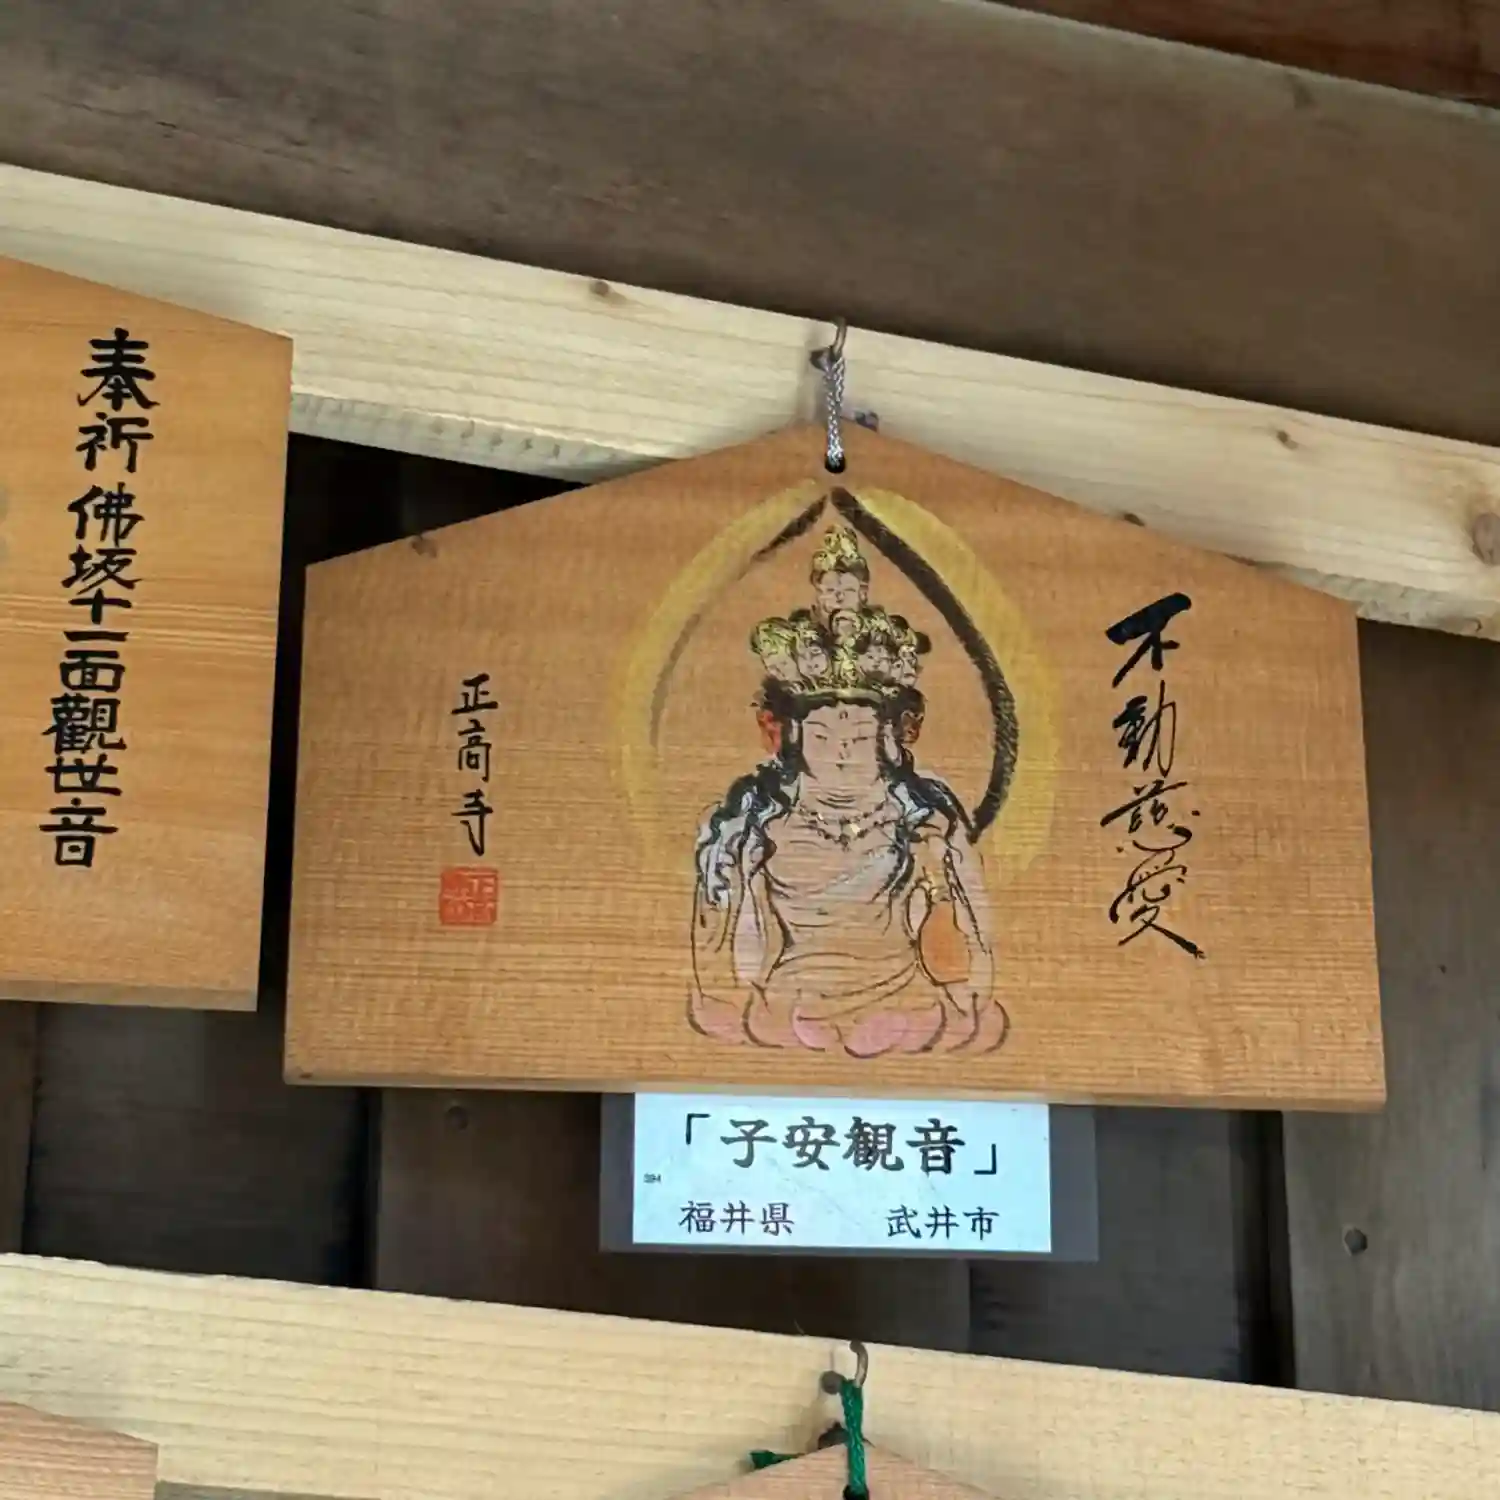 奉祈佛坂十一面觀世音
不動慈愛
正高寺
「子安観音」
福井県 武井市